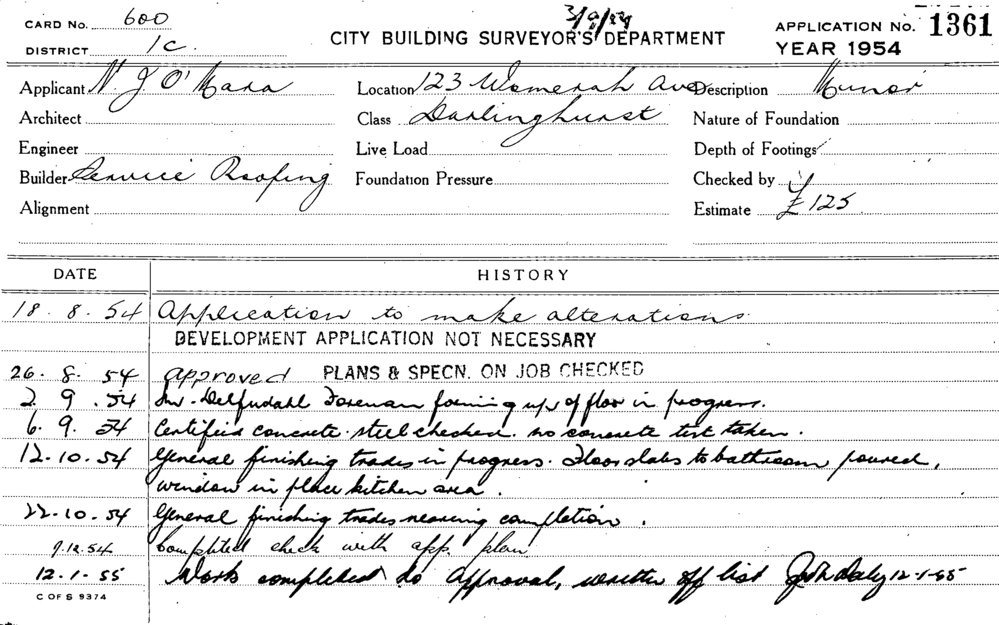 CARD No. 600
3/9/54
APPLICATION No. 1361
DISTRICT 1c.
CITY BUILDING SURVEYOR'S DEPARTMENT
YEAR 1954
Applicant N J O'Mara Location 123 Womerah Ave Description Minor
Architect Class Darlinghurst Nature of Foundation
Engineer Live Load Depth of Footings
Builder Service Roofing Foundation Pressure Checked by
Alignment Estimate £125
DATE HISTORY
18. 8. 54 Application to make alterations
DEVELOPMENT APPLICATION NOT NECESSARY
26. 8. 54 approved PLANS & SPECN. ON JOB CHECKED
2 9. 54 Foreman forming up of floor in progress.
6. 9. 54 Certified concrete. steel checked. no concrete test taken.
12.10.54 General finishing trades in progress. Floor slabs to bathroom poured,
window in place kitchen area.
22.10.54 General finishing trades nearing completion.
9.12.54 Completed check with app. plan
12.1.55 Work completed to approval, written off list John Daly 12-1-55
C OF S 9374